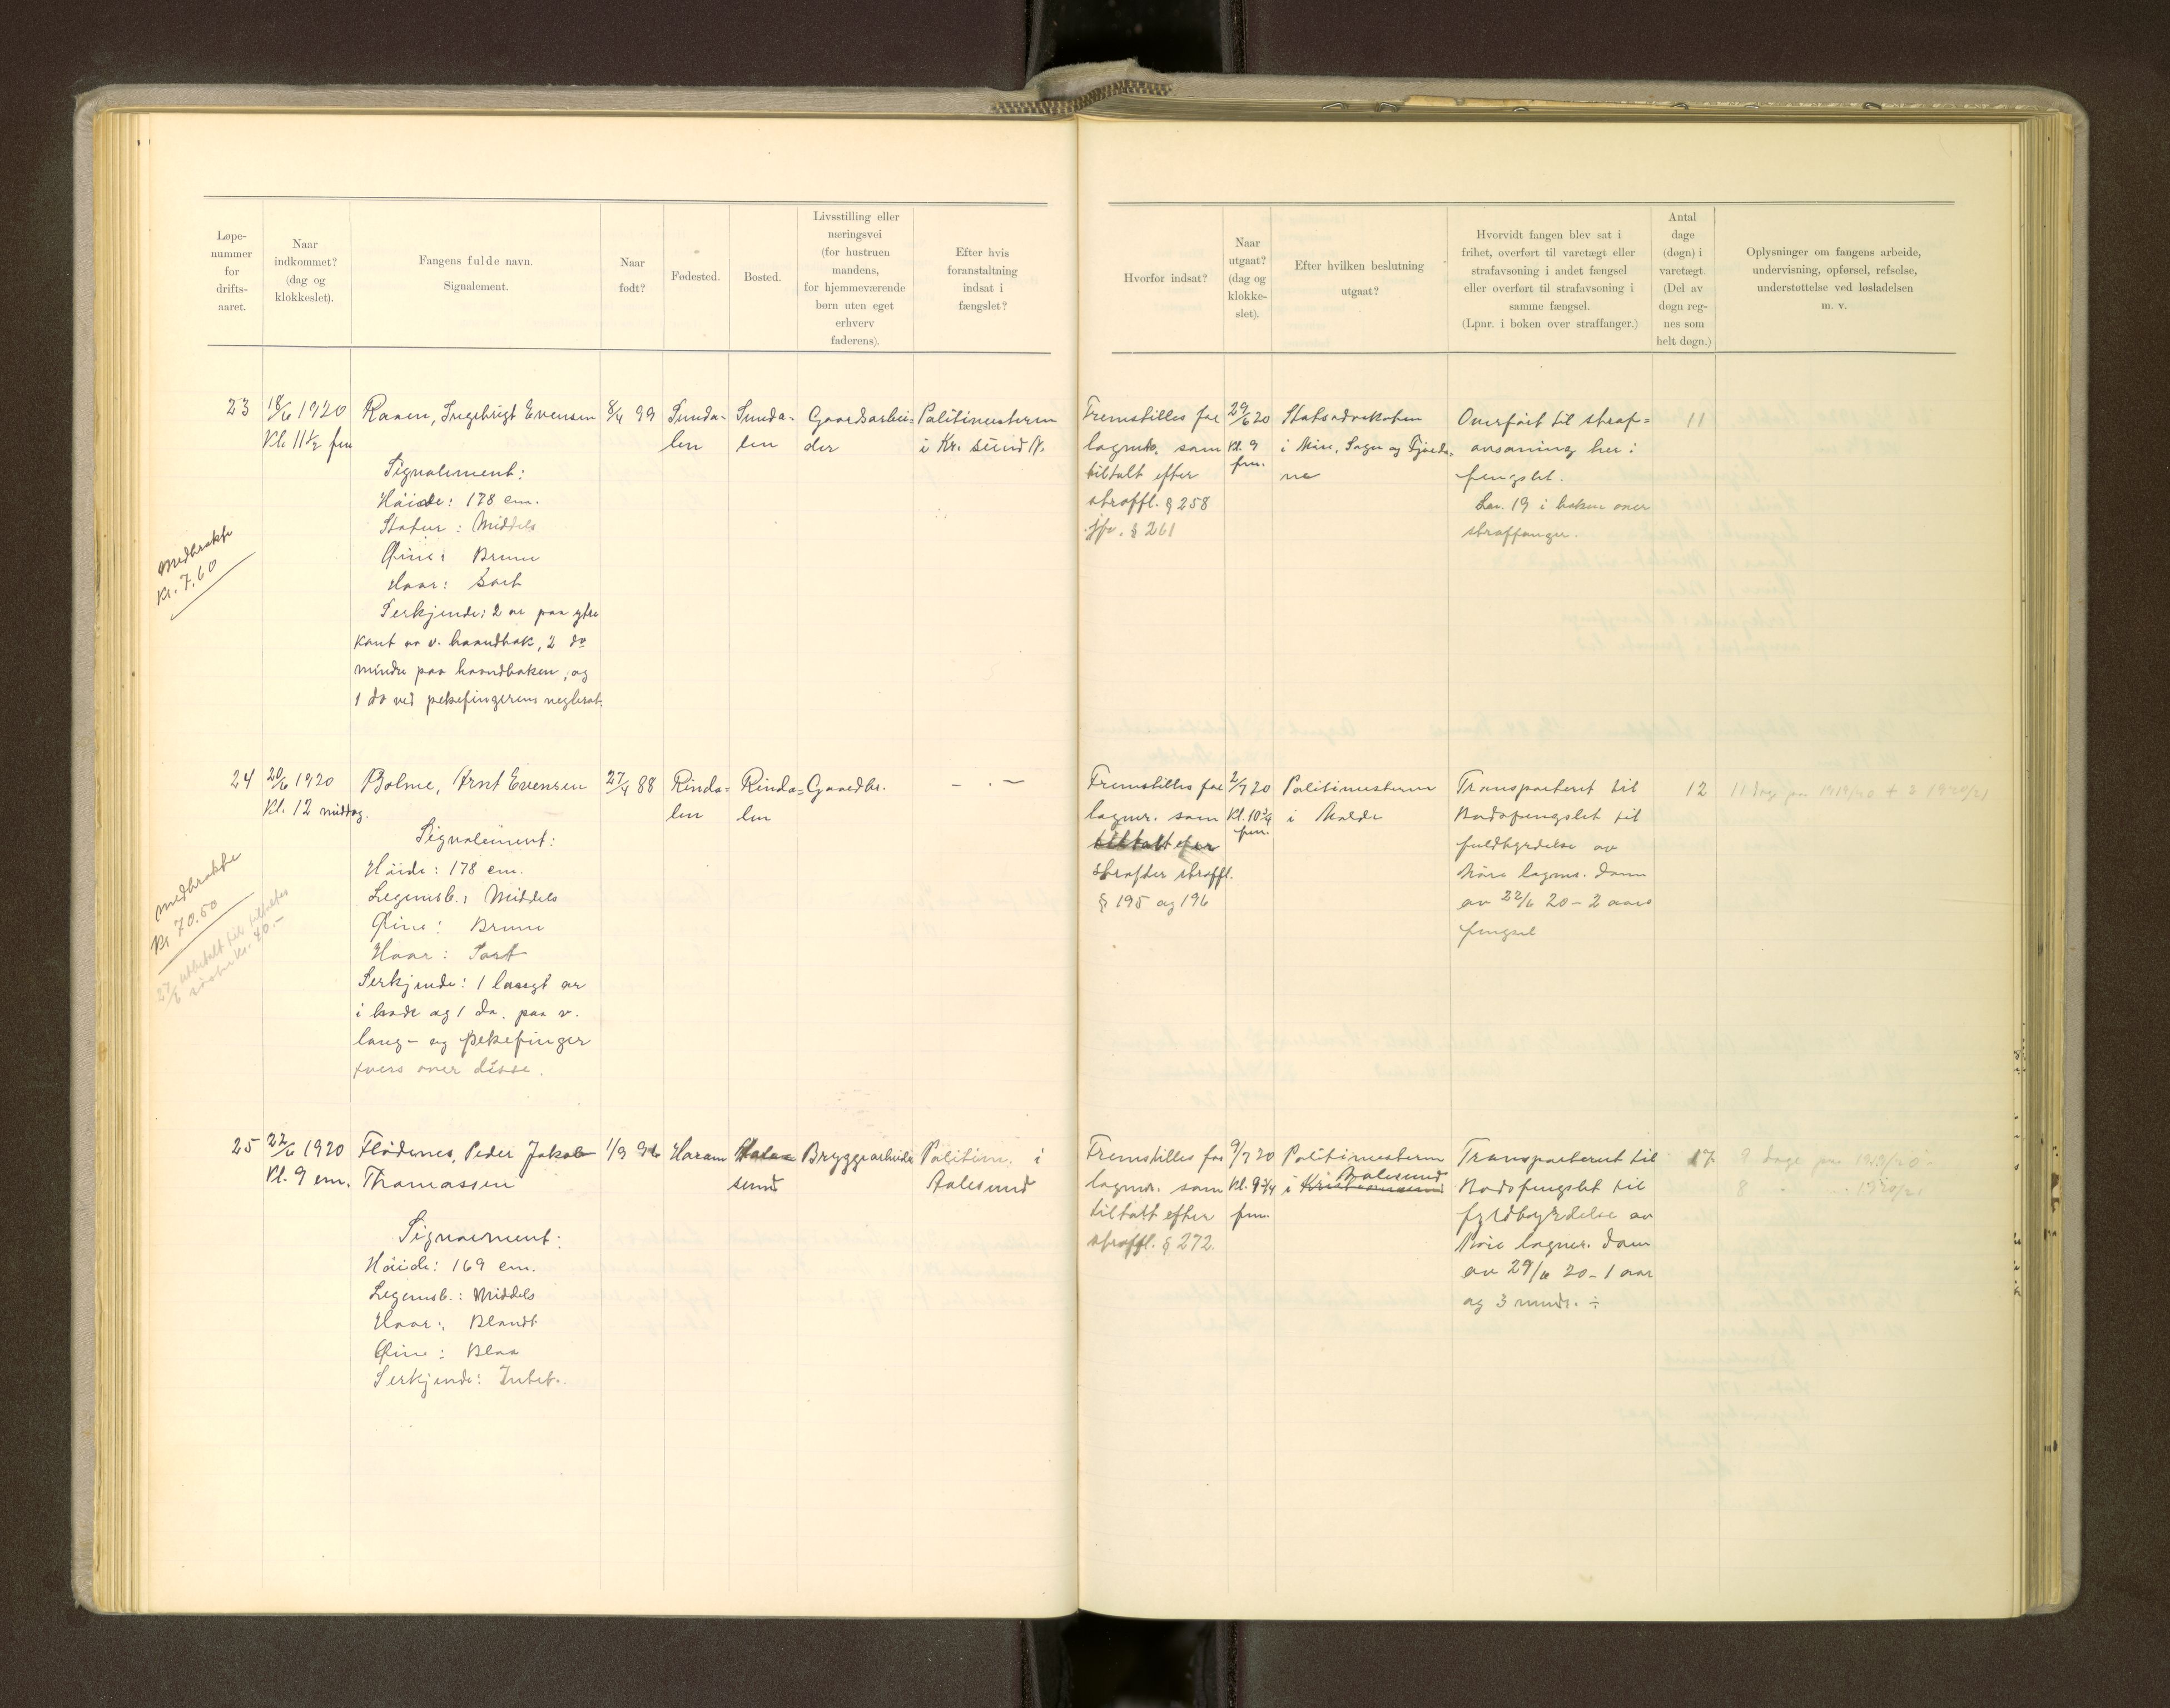 Løpe-
nummer
for
drifts-
aaret.
Naar
indkommet?
(dag og
klokkeslet).
Fangens fulde navn.
Signalement.
Naar
født?
Fødested.
Bosted.
Livsstilling eller
næringsvei
(for hustruen
mandens,
for hjemmeværende
børn uten eget
erhverv
faderens).
Efter hvis
foranstaltning
indsat i
fængslet?
Hvorfor indsat?
Naar
utgaat?
(dag og
klokke-
slet).
Efter hvilken beslutning
utgaat?
Hvorvidt fangen blev sat i
frihet, overført til varetægt eller
strafavsoning i andet fængsel
eller overført til strafavsoning i
samme fængsel.
(Lpnr. i boken over straffanger.)
Antal
dage
(døgn) i
varetægt.
(Del av
døgn reg-
nes som
helt døgn.)
Oplysninger om fangens arbeide,
undervisning, opførsel, refselse,
understøttelse ved løsladelsen
m. v.
23
18/6 1920
Kl. 11½ fm
Raaen, Ingebrigt Evensen
Signalement:
Høide: 178 cm.
Statur: Middels
Øine: Brune
Haar: Sort
Serkjende: 2 ar paa ytre
kant av v. haandbak, 2 do
mindre paa haandbaken, og
1 do ved pekefingerens neglerot.
8/4 99
Sunda-
len
Sunda-
len
Gaardsarbei-
der
Politimesteren
i Kr. sund N.
Fremstilles for
lagmr. som
tiltalt efter
straffl. § 258
jfr. § 261
29/6 20
Kl. 9
fm.
Statsadvokaten
i Møre, Sogn og Fjorda-
ne
Overført til straf-
avsoning her i
fengslet.
Lnr. 19 i boken over
straffanger.
11
Medbrakte
Kr. 7.60
24
20/6 1920
Kl. 12 middag.
Bolme, Arnt Evensen
Signalement:
Høide: 178 cm.
Legemsb.: Middels
Øine: Brune
Haar: Sort
Serkjende: 1 lavegt ar
i hode og 1 do. paa v.
lang- og pekefinger
tvers over disse.
27/4 88
Rinda-
len
Rinda-
len
Gaardbr.
- . -
Fremstilles for
lagmr. som
tiltalt efter
straffer straffl.
§ 195 og 196
2/7 20
Kl. 10¾
fm.
Politimesteren
i Molde
Transporteret til
Bodsfengslet til
fuldbyrdelse av
Møre lagmr. dom
av 22/6 20 - 2 aars
fengsel
12
11 dag paa 1919/20 + 2 1920/21
Medbrakte
Kr. 70.50
27/6 utbetalt
Kr. 40.-
25
22/6 1920
Kl. 9 em.
Flødenes, Peder Jakob
Thomassen
Signaement:
Høide: 169 cm.
Legemsb.: Middels
Haar: Blondt
Øine: Blaa
Serkjende: Intet.
1/9 96
Haram
Aale-
sund
Bryggearbeider
Politim. i
Aalesund
Fremstilles for
lagmr. som
tiltalt efter
straffl. § 272.
9/7 20
Kl. 9¾
fm.
Politimesteren
i Kristiansund Aalesund
Transporteret til
Bodsfengslet til
fuldbyrdelse av
Møre lagmr. dom
av 29/6 20 - 1 aar
og 3 mndr. ÷
17
9 dage paa 1919/20
8 " " 1920/21